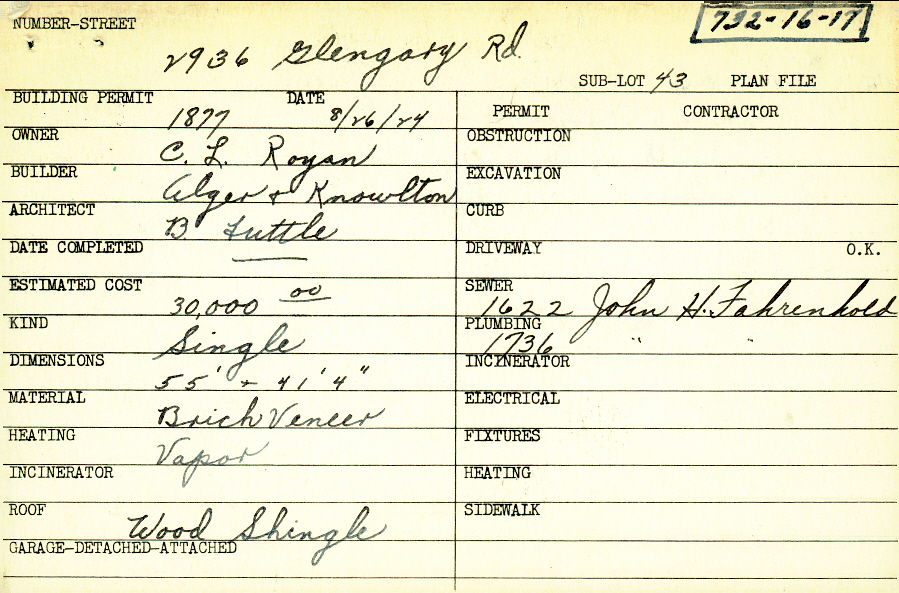 732-16-17
NUMBER-STREET
2936 Glengary Rd.
SUB-LOT 43 PLAN FILE
BUILDING PERMIT DATE
1877 8/26/24
PERMIT CONTRACTOR
OWNER
C. L. Royan
OBSTRUCTION
BUILDER
Alger & Knowlton
EXCAVATION
ARCHITECT
B. Tuttle
CURB
DATE COMPLETED
DRIVEWAY O.K.
ESTIMATED COST
30,000 00
SEWER
1622 John H. Fahrenhold
KIND
Single
PLUMBING
1736 " "
DIMENSIONS
55' + 41' 4"
INCINERATOR
MATERIAL
Brick Veneer
ELECTRICAL
HEATING
Vapor
FIXTURES
INCINERATOR
HEATING
ROOF
Wood Shingle
SIDEWALK
GARAGE-DETACHED-ATTACHED